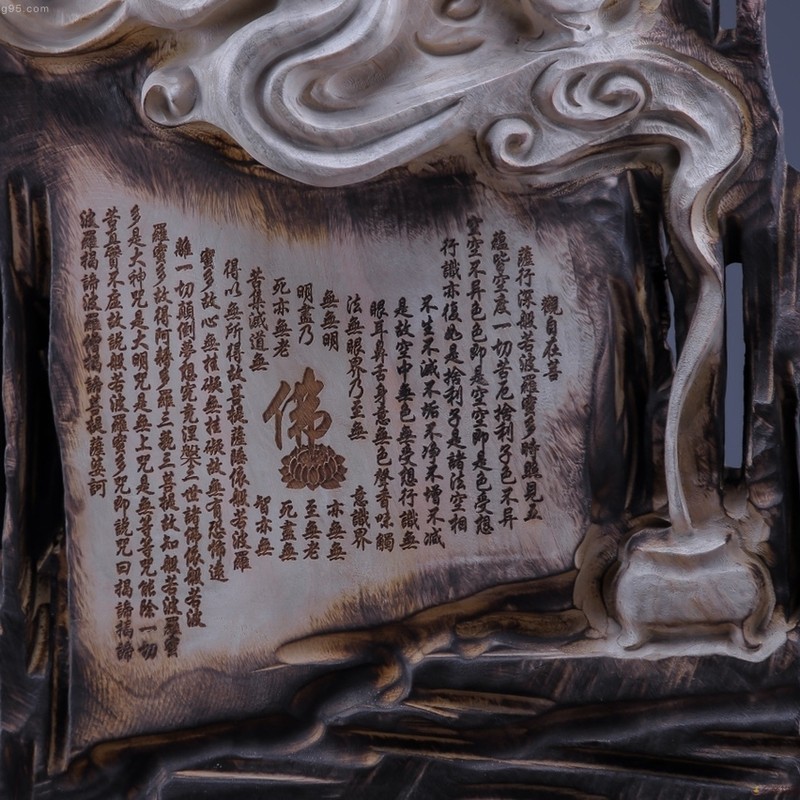 g95.com
觀自在菩
薩行深般若波羅蜜多時照見五
蘊皆空度一切苦厄捨利子色不异
空空不异色色即是空空即是色受想
行識亦復如是捨利子是諸法空相
不生不滅不垢不净不增不减
是故空中無色無受想行識無
眼耳鼻舌身意無色聲香味觸
法無眼界乃至無意識界
無無明亦無無
明盡乃至無老
死亦無老死盡無
苦集滅道無智亦無
得以無所得故菩提薩陲依般若波羅
蜜多故心無挂礙無挂礙故無有恐怖遠
離一切顛倒夢想究竟涅槃三世諸佛依般若波
羅蜜多故得阿耨多羅三藐三菩提故知般若波羅蜜
多是大神咒是大明咒是無上咒是無等等咒能除一切
苦真實不虛故說般若波羅蜜多咒即說咒曰揭諦揭諦
波羅揭諦波羅僧揭諦菩提薩婆訶
佛